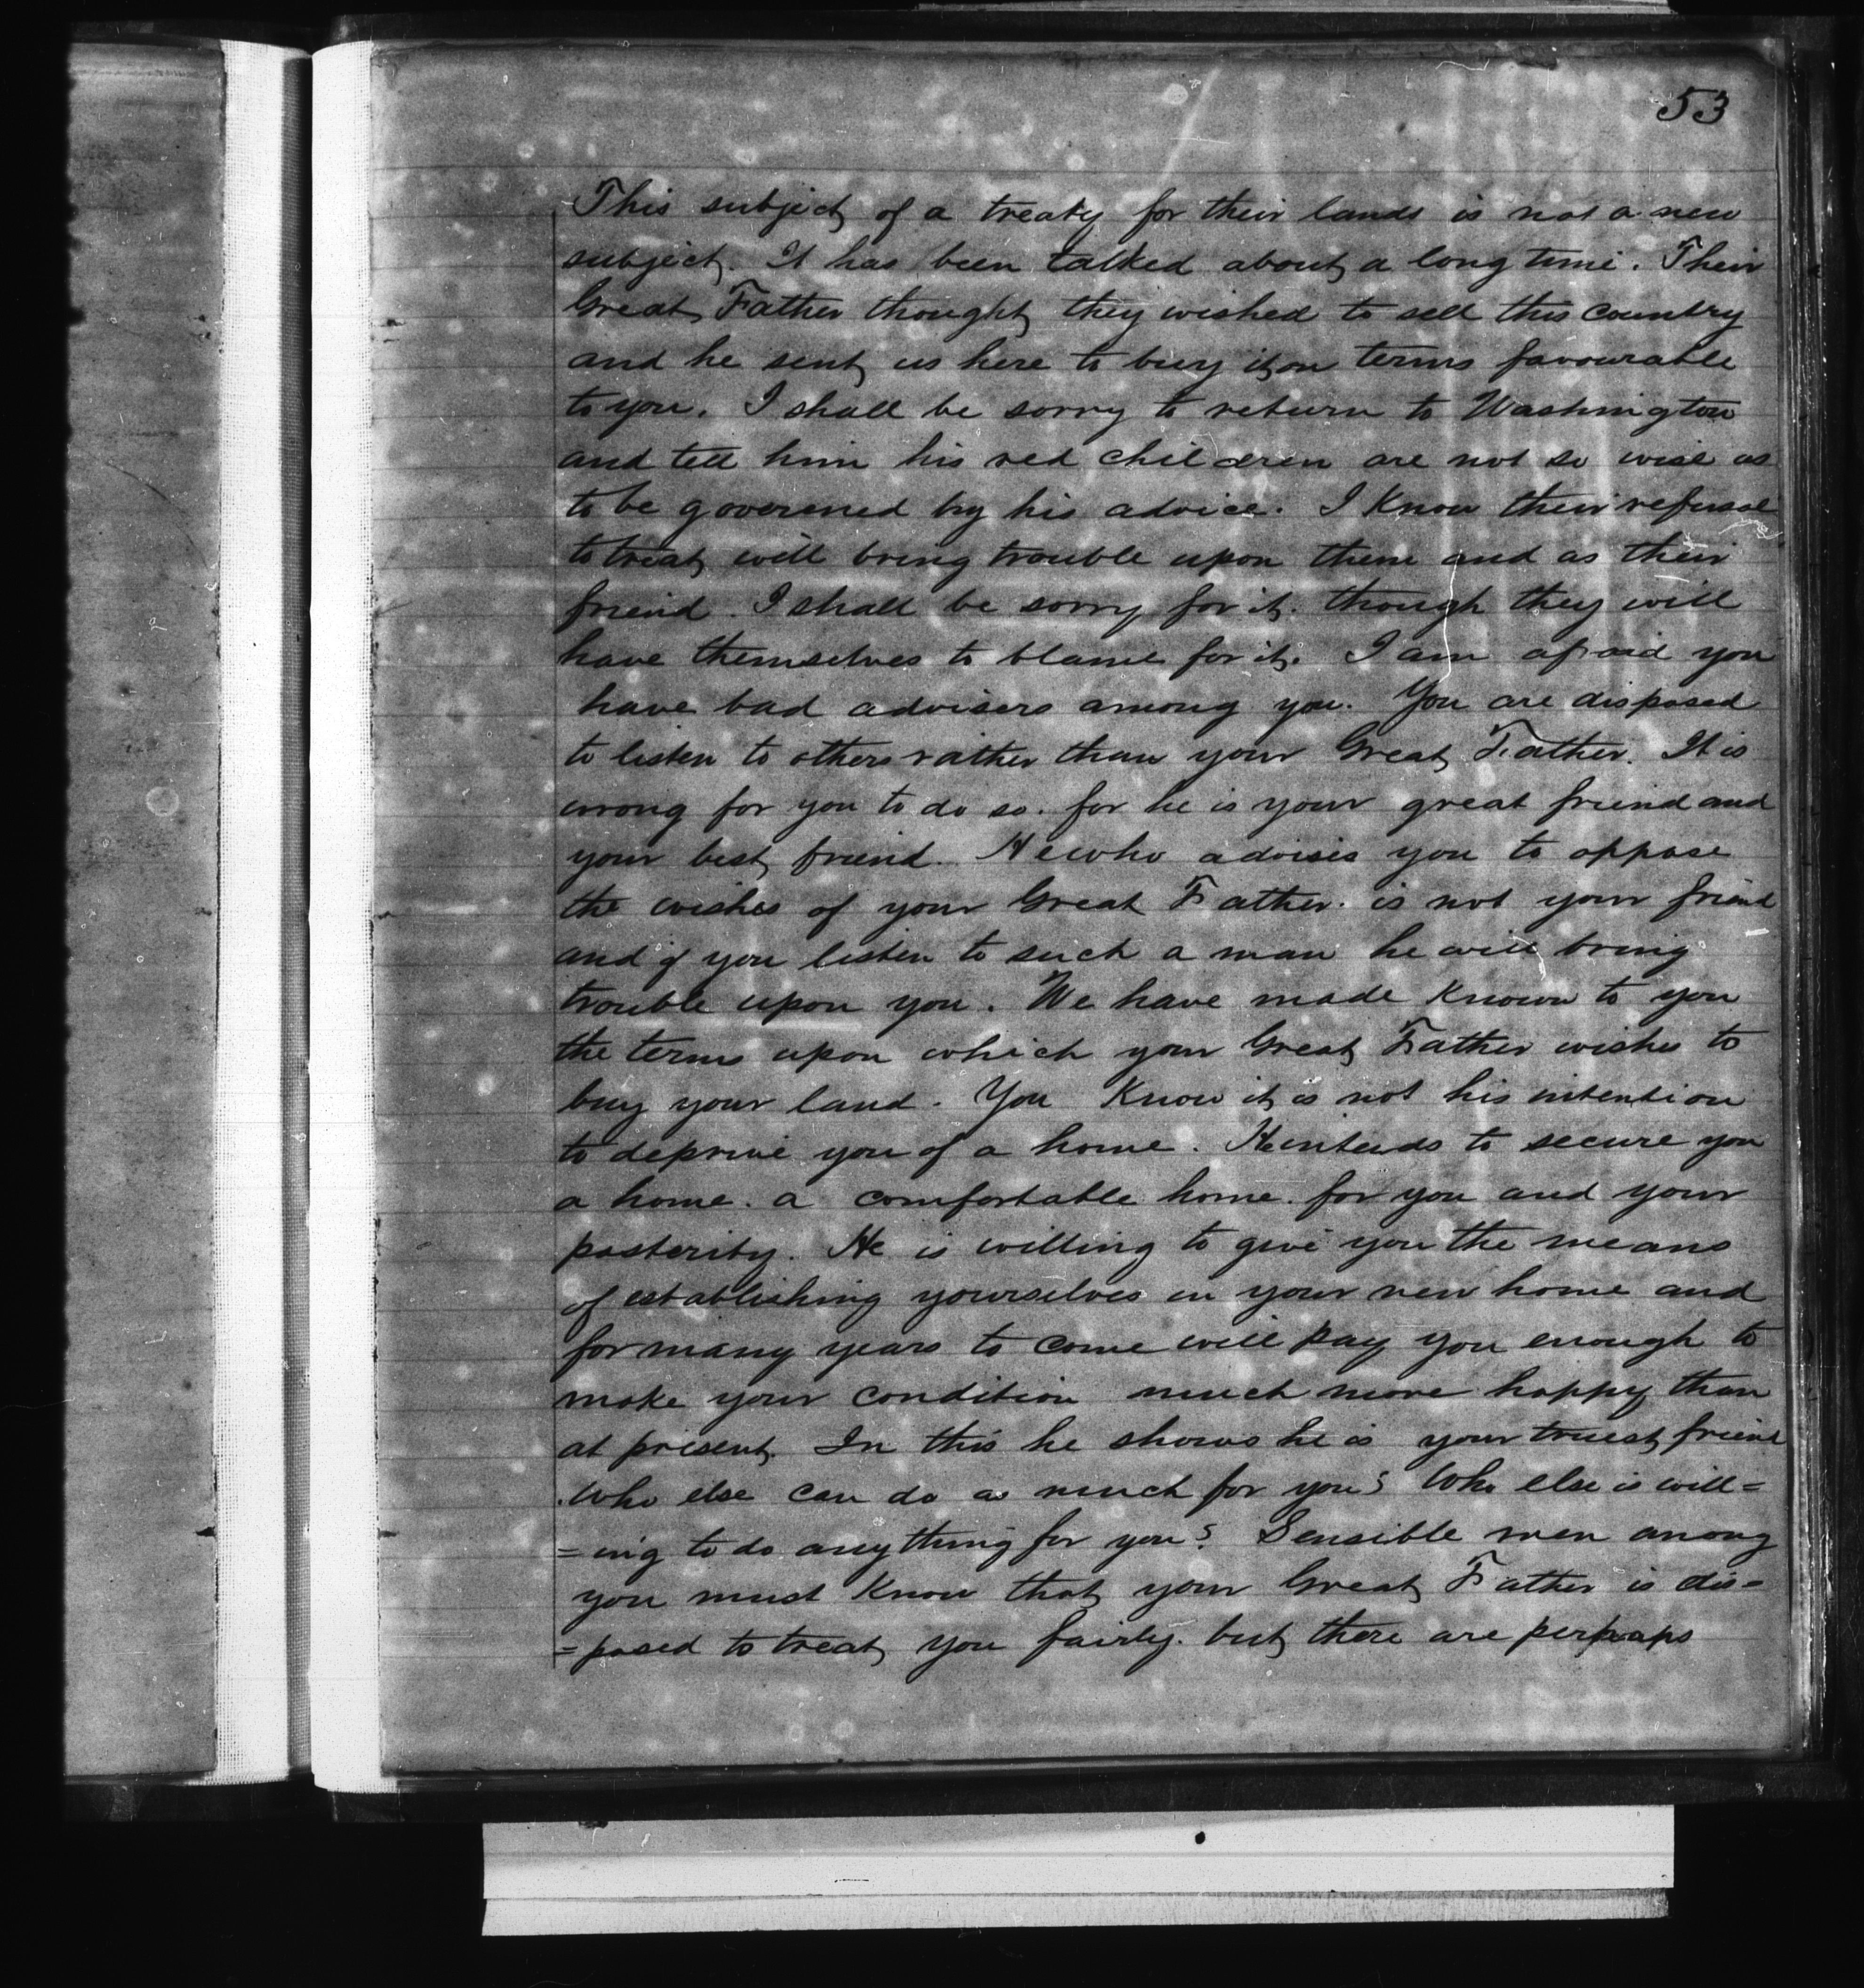 53
This subject of a treaty for their lands is not a new
subject. It has been talked about a long time. Their
Great Father thought they wished to sell this country
and he sent us here to buy it on terms favourable
to you. I shall be sorry to return to Washington
and tell him his red children are not so wise as
to be goverened by his advice. I know their refusal
to treat will bring trouble upon them and as their
friend. I shall be sorry for it. though they will
have themselves to blame for it. I am afraid you
have bad advisers among you. You are disposed
to listen to others rather than your Great Father. It is
wrong for you to do so. for he is your great friend and
your best friend. He who advises you to oppose
the wishes of your Great Father. is not your friend
and if you listen to such a man he will bring
trouble upon you. We have made known to you
the terms upon which your Great Father wishes to
buy your land. You know it is not his intention
to deprive you of a home. He intends to secure you
a home. a comfortable home. for you and your
posterity. He is willing to give you the means
of establishing yourselves in your new home and
for many years to come will pay you enough to
make your condition much more happy than
at present. In this he shows he is your truest friend
. Who else can do as much for you? Who else is will=
=ing to do anything for you? Sensible men among
you must know that your Great Father is dis=
=posed to treat you fairly. but there are perhaps